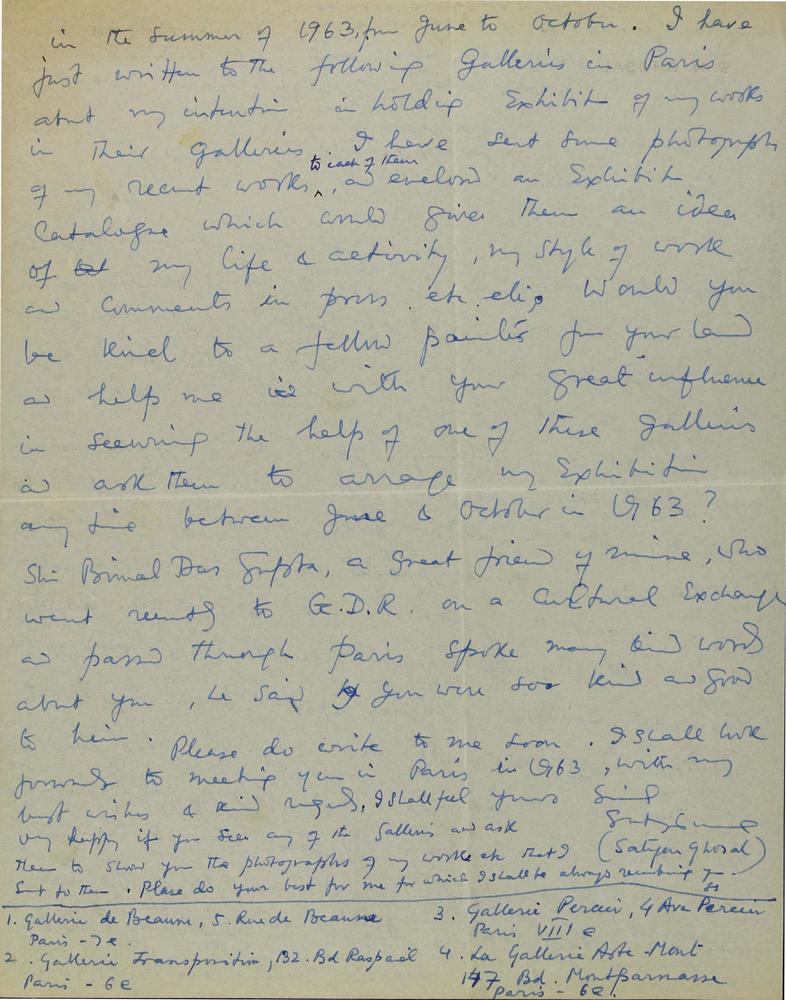 in the summer of 1963, from June to October. I have
just written to the following Galleries in Paris
about my intention in holding Exhibition of my works
in their Galleries. I have sent some photographs
to each of them
of my recent works, and enclosed an Exhibition
Catalogue which could give them an idea
of my life & activity, my style of work
and comments in press etc etc. Would you
be kind to a fellow painter from your land
and help me with your great influence
in securing the help of one of these galleries
and ask them to arrange my Exhibition
any time between June & October in 1963?
Shri Bimal Das Gupta, a great friend of mine, who
went recently to G.D.R. on a Cultural Exchange
and passed through Paris spoke many kind words
about you, he said you were so kind and good
to him. Please do write to me soon. I shall look
forward to meeting you in Paris in 1963, with my
best wishes & kind regards, I shall feel yours
very happy if you see any of the Galleries and ask
them to show you the photographs of my works etc that I (Satyen Ghosal)
sent to them. Please do your best for me for which I shall be always
1. Gallerie de Beaune, 5. Rue de Beaune
Paris - 7e.
2. Gallerie Transposition, 132. Bd Raspail
Paris - 6e
3. Gallerie Percier, 4 Ave Percier
Paris VIII e
4. La Gallerie Arte-Mont
147 Bd. Montparnasse
Paris - 6e.